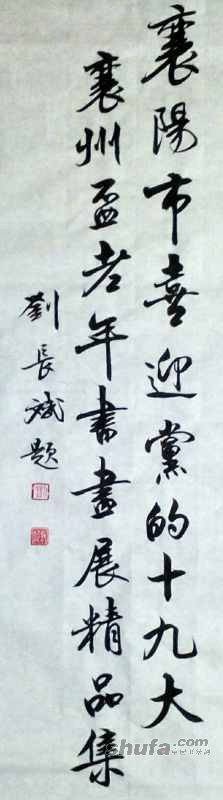 襄陽市喜迎黨的十九大
襄州盃老年書畫展精品集
劉長斌題
shufa.com